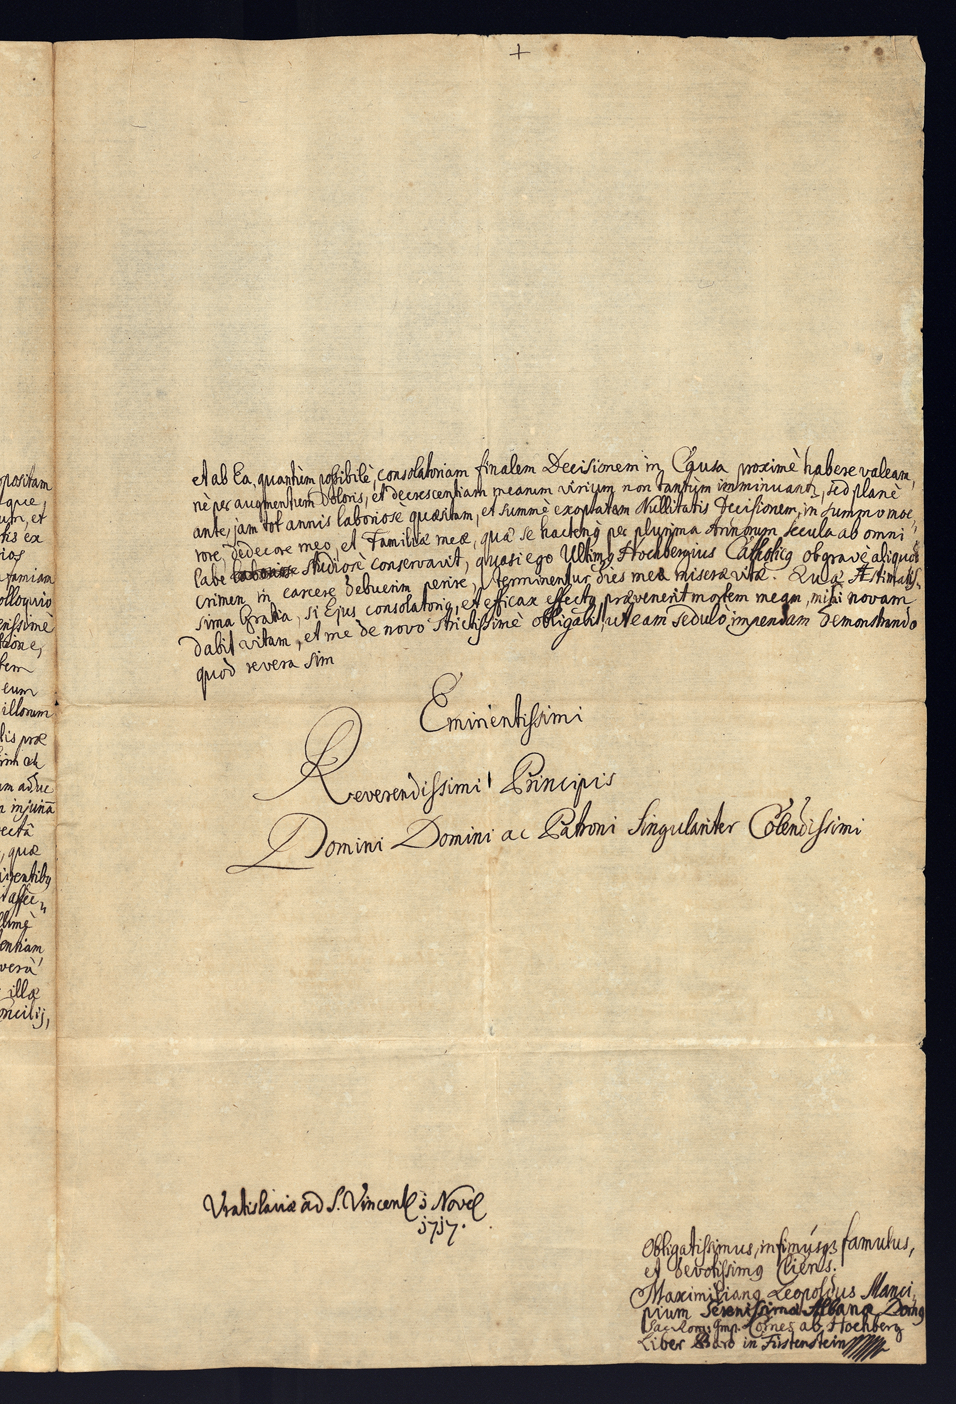 +
opositam
que,
um, et
tis ex
rios
famiam
olloquio
enissimè
tione,
bem
eum
illorum
lis præ
rim ac
am adhuc
injuriā
ectâ
, quæ
igentibꝰ
affec„
llimè
entiam
verâ
illæ
oncilij,
et ab Ea, quantùm possibile, consolatoriam finalem Decisionem in Causa proximè habere valeam,
nè per augmentum doloris, et decrescentiam mearum virium non tantùm imminuantur, sed planè
ante, jam tot annis laboriosè quæsitam, et summè exoptatam Nullitatis Decisionem, in summo moe„
rore, dedecore meo, et Familiæ meæ, quæ se hactenꝰ per plurima Annorum secula ab omni
labe studiosè conservavit, quasi ego Ultimꝰ Hochbergius Catholicꝰ ob grave aliquod
crimen in carcere debuerim perire, terminentur dies meæ miseræ vitæ. Quæ Æstimatis„
sima Gratia, si Ejus consolatoriꝰ, et efficax effectꝰ prævenerit mortem meam, mihi novam
dabit vitam, et me de novo strictissimè obligabit, ut eam sedulò impendam demonstrando
quod revera sim
Eminentissimi
Reverendissimi Principis
Domini Domini ac Patroni Singulariter Colendissimi
Vratislaviæ ad S. Vincent j Nove
j7j7.
Obligatissimus, infimúsqꝫ famulus,
et devotissimꝰ Cliens.
Maximilianꝰ Leopoldus Manci„
pium Serenissimæ Albanæ Domꝰ
Sac. Rom. Imp. Comes ab Hochberg
Liber Baro in Fürstenstein